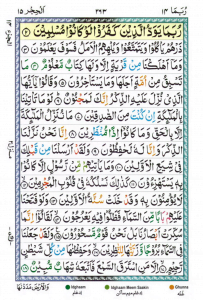 رُبَمَا ١٤ ٢٩٣ اَلْحِجْر ١٥
رُبَمَا يَوَدُّ الَّذِيْنَ كَفَرُوْا لَوْ كَانُوْا مُسْلِمِيْنَ ٢
ذَرْهُمْ يَاْكُلُوْا وَيَتَمَتَّعُوْا وَيُلْهِهِمُ الْاَمَلُ فَسَوْفَ يَعْلَمُوْنَ
وَمَآ اَهْلَكْنَا مِنْ قَرْيَةٍ اِلَّا وَلَهَا كِتَابٌ مَّعْلُوْمٌ مَا
تَسْبِقُ مِنْ اُمَّةٍ اَجَلَهَا وَمَا يَسْتَاْخِرُوْنَ وَقَالُوْا يٰٓاَيُّهَا
الَّذِيْ نُزِّلَ عَلَيْهِ الذِّكْرُ اِنَّكَ لَمَجْنُوْنٌ لَوْ مَا تَاْتِيْنَا
بِالْمَلٰٓئِكَةِ اِنْ كُنْتَ مِنَ الصّٰدِقِيْنَ مَا نُنَزِّلُ الْمَلٰٓئِكَةَ
اِلَّا بِالْحَقِّ وَمَا كَانُوْٓا اِذًا مُّنْظَرِيْنَ اِنَّا نَحْنُ نَزَّلْنَا
الذِّكْرَ وَاِنَّا لَهٗ لَحٰفِظُوْنَ وَلَقَدْ اَرْسَلْنَا مِنْ قَبْلِكَ
فِيْ شِيَعِ الْاَوَّلِيْنَ وَمَا يَاْتِيْهِمْ مِّنْ رَّسُوْلٍ اِلَّا كَانُوْا
بِهٖ يَسْتَهْزِءُوْنَ كَذٰلِكَ نَسْلُكُهٗ فِيْ قُلُوْبِ الْمُجْرِمِيْنَ لَا
يُؤْمِنُوْنَ بِهٖ وَقَدْ خَلَتْ سُنَّةُ الْاَوَّلِيْنَ وَلَوْ فَتَحْنَا
عَلَيْهِمْ بَابًا مِّنَ السَّمَآءِ فَظَلُّوْا فِيْهِ يَعْرُجُوْنَ لَقَالُوْٓا اِنَّمَا
سُكِّرَتْ اَبْصَارُنَا بَلْ نَحْنُ قَوْمٌ مَّسْحُوْرُوْنَ وَلَقَدْ جَعَلْنَا
فِي السَّمَآءِ بُرُوْجًا وَّزَيَّنّٰهَا لِلنّٰظِرِيْنَ وَحَفِظْنٰهَا مِنْ كُلِّ شَيْطٰنٍ
رَّجِيْمٍ اِلَّا مَنِ اسْتَرَقَ السَّمْعَ فَاَتْبَعَهٗ شِهَابٌ مُّبِيْنٌ
Idghaam Idghaam Meem Saakin Ghunna